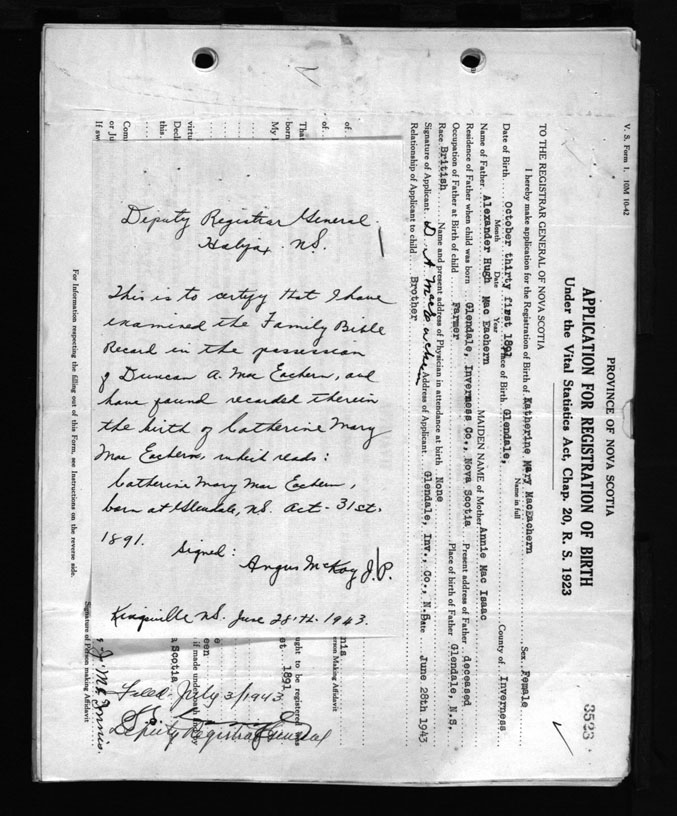 V. S. Form 1. 10M 10-42
PROVINCE OF NOVA SCOTIA
APPLICATION FOR REGISTRATION OF BIRTH
Under the Vital Statistics Act, Chap. 20, R. S. 1923
3523
TO THE REGISTRAR GENERAL OF NOVA SCOTIA
I hereby make application for the Registration of Birth of Katherine Mary MacEachern Sex Female
Name in full
Date of Birth October thirty first 1891 Place of Birth Glendale, County of Inverness
Month Date Year
Name of Father Alexander Hugh Mac Eachern MAIDEN NAME of Mother Annie Mac Isaac
Residence of Father when child was born Glendale, Inverness Co., Nova Scotia Present address of Father deceased
Occupation of Father at Birth of child Farmer Place of birth of Father Glendale, N.S.
Race British Name and present address of Physician in attendance at birth None
Signature of Applicant D. A. Address of Applicant Glendale, Inv., Co., N.S. Date June 28th 1943
Relationship of Applicant to child Brother
Deputy Registrar General.
Halifax N.S.
This is to certify that I have
examined the Family Bible
Record in the possession
of Duncan A. Mac Eachern, and
have found recorded therein
the birth of Catherine Mary
Mac Eachern, which reads:
Catherine Mary Mac Eachern,
born at Glendale, N.S. Oct- 31st.
1891.
Signed:
Angus McKay J.P.
Kingsville N.S. June 28th. 1943.
of
of
That
born
My
virtu
Decl
this
Com
or Ju
If sw
nis
erson Making Affidavit
ught to be registered as
st 1891
if made under oath and by
een
a Scotia
Filed July 3/1943
Deputy Registrar General
Signature of Person making Affidavit
For Information respecting the filling out of this Form, see Instructions on the reverse side.